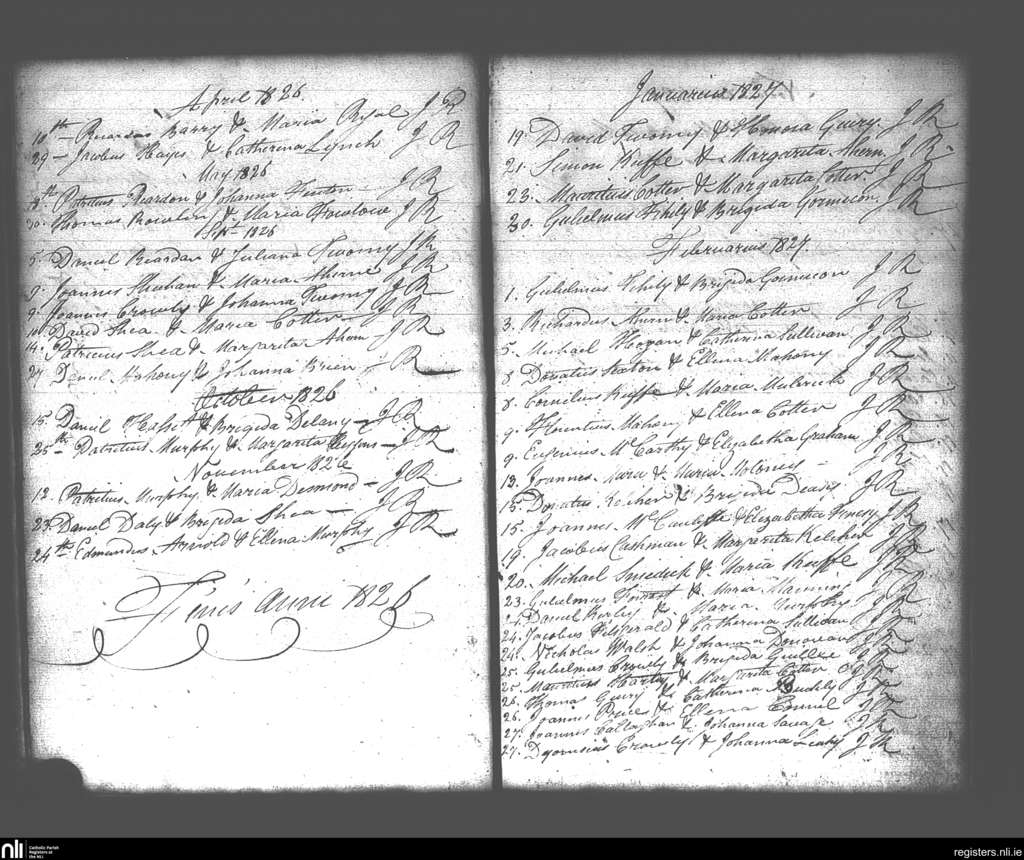 April 1826.
10th Ricardus Barry & Maria Ryal J R
29 - Jacobus Hayes & Catherina Lynch J R
May 1826
Patritius Reardon & Johanna J R
30. Thomas & Maria J R
Sepr 1826
5. Daniel Reardan & Juliana Twomy J R
9. Joannes Shehan & Maria Aherne J R
9. Joannes Crowely & Johanna Twomy J R
10 David Shea & Maria Cotter J R
14. Patricius Shea & Margarita Ahern J R
24 Daniel Mahony & Johanna Brien J R
October 1826
15. Daniel & Brigida Delany J R
25th Patritius Murphy & Margarita J R
November 1826
12. Patritius Murphy & Maria Desmond J R
23. Daniel Daly & Brigida Shea J R
24th Edmundus Arnold & Ellena Murphy J R
Finis anni 1826
Januarius 1827
19 David Twomy & Honora Geary J R
21. Simon Kieffe & Margarita Ahern J R
23. Mauritius Cotter & Margarita Cotter J R
30. Gulielmus Fihily & Brigida Gormicon J R
Februarius 1827
1. Gulielmus Fihily & Brigida Gormicon J R
3. Richardus Ahern & Maria Cotter J R
5. Michael Hogan & Catherina Sullivan J R
8 Donatus & Ellena Mahony J R
8. Cornelius Kieffe & Maria J R
9. Florentius Mahony & Ellena Cotter J R
9. Eugenius McCarthy & Elizabetha Graham J R
13. Joannes & Maria J R
15. Donatus & Brigida J R
15. Joannes McAuliffe & Elizabetha J R
19. Jacobus Cashman & Margarita Keleher J R
20. Michael & Maria Kieffe J R
23. Gulielmus & Maria J R
Daniel & Maria Murphy J R
24. Jacobus Fitzgerald & Catherina Sullivan J R
24. Nicholas Walsh & Johanna J R
25. Gulielmus Crowely & Brigida J R
25. Mauritius & Margarita Cotter J R
26. Thomas Geary & Catherina Buckly J R
26. Joannes & Ellena J R
27. Joannes Callaghan & Johanna Savage J R
27. Dyonisius Crowely & Johanna Leahy J R
nli Catholic Parish
Registers at
the NLI
registers.nli.ie